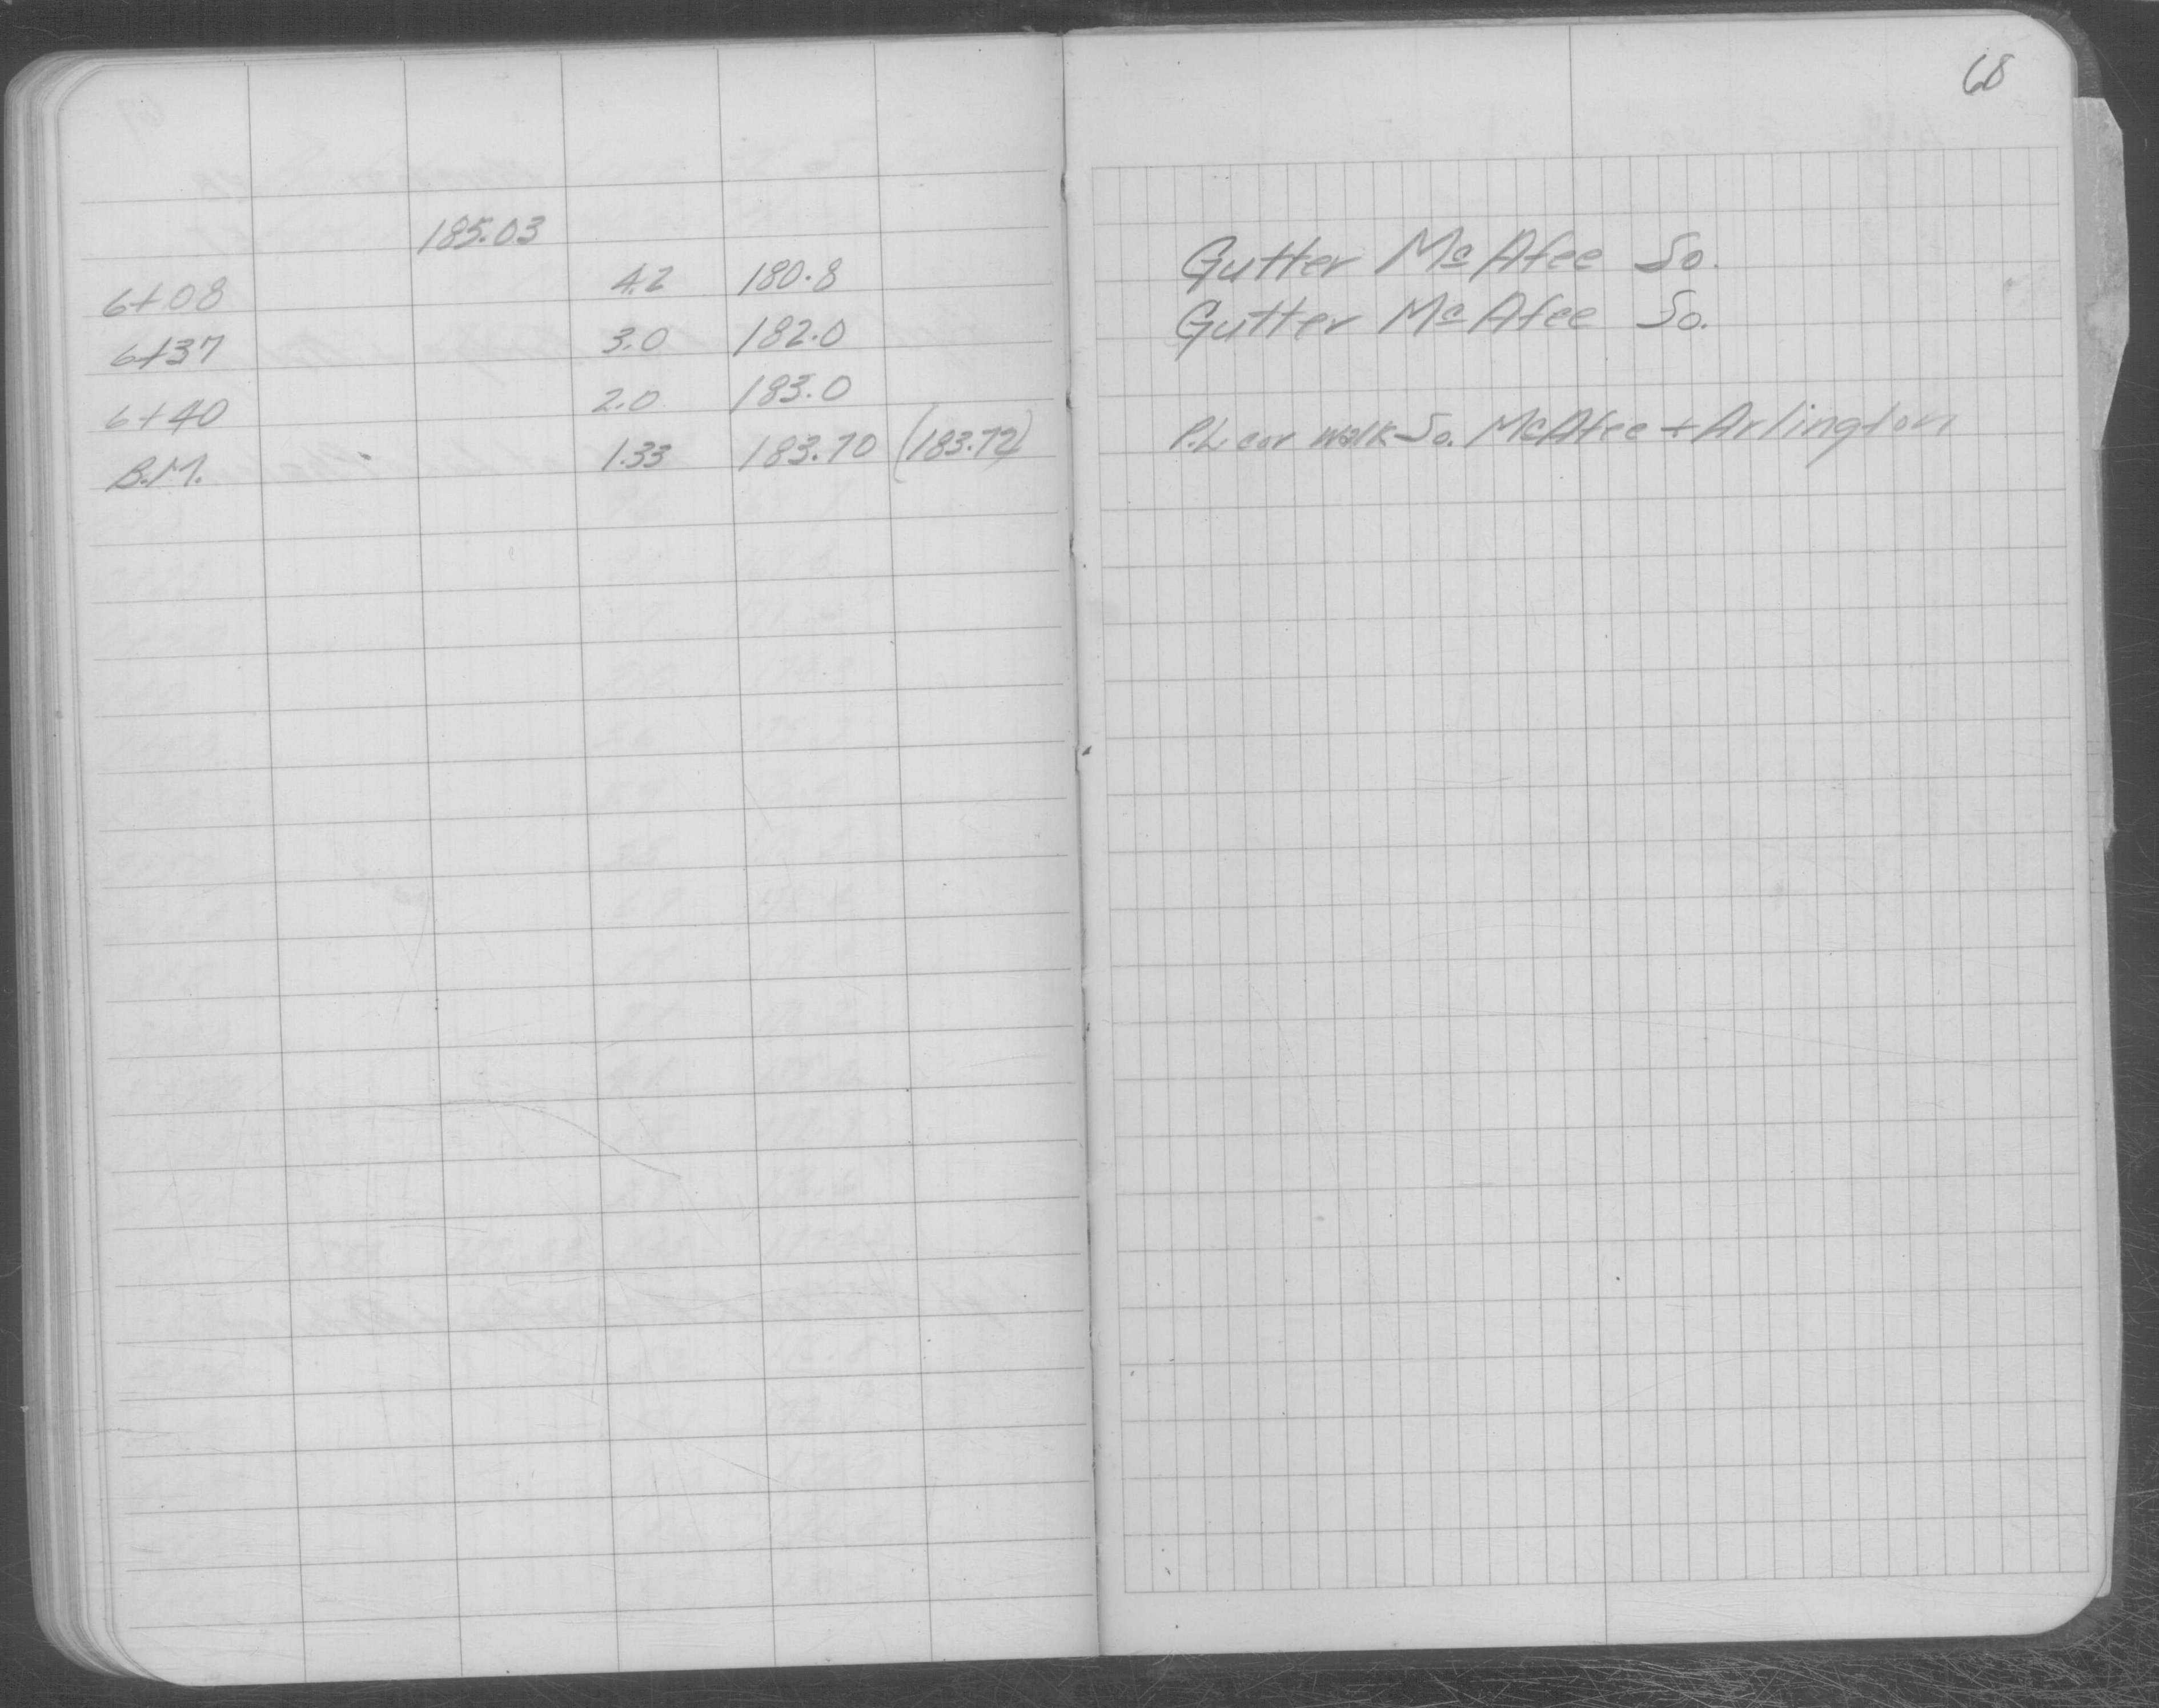 68
185.03
6+08 4.2 180.8 Gutter McAfee So.
6+37 3.0 182.0 Gutter McAfee So.
6+40 2.0 183.0
B.M. 1.33 183.70 (183.72) P.L. cor walk So. McAfee + Arlington